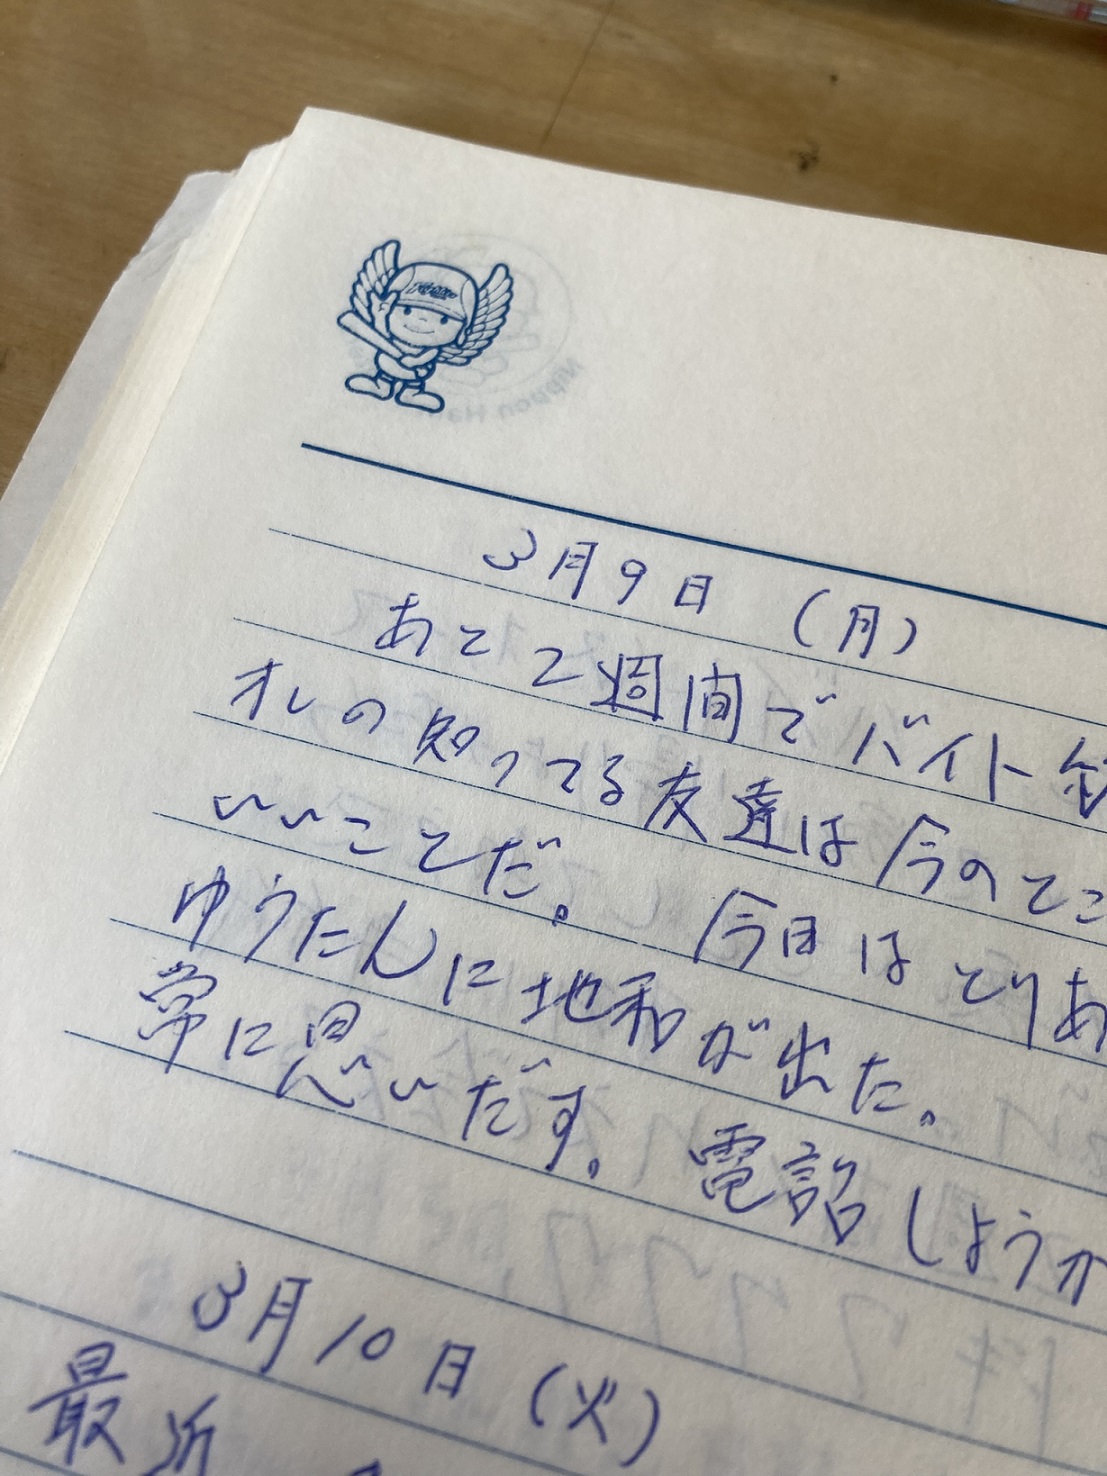 3月9日 (月)
あと2週間でバイト
オレの知ってる友達は今のとこ
いいことだ。 今日はとりあ
ゆうたんに地和が出た。
常に思いだす。 電話しようか
3月10日 (火)
最近